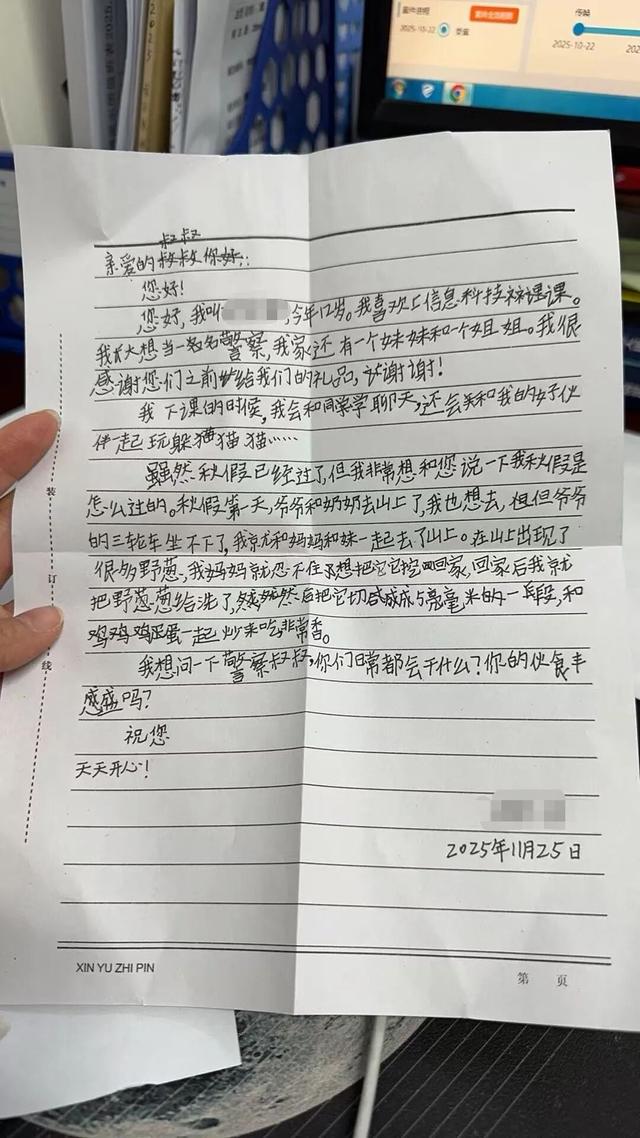 案件进程
2025-10-22
受案
传唤
2025-10-22
叔叔
亲爱的叔叔你好:
您好!
您好,我叫,今年12岁。我喜欢上信息科技课。
我长大想当一名警察,我家还有一个妹妹和一个姐姐。我很
感谢您们之前给我们的礼品,谢谢!
我下课的时候,我会和同学聊天,还会和我的好伙
伴一起玩躲猫猫……
虽然秋假已经过了,但我非常想和您说一下我秋假是
怎么过的。秋假第一天,爷爷和奶奶去山上了,我也想去,但爷爷
的三轮车坐不下了,我就和妈妈和妹一起去了山上。在山上出现了
很多野葱,我妈妈就忍不住想把它挖回家,回家后我就
把野葱给洗了,然后把它切成5毫米的一段段,和
鸡蛋一起炒来吃非常香。
我想问一下警察叔叔,你们日常都会干什么?你的伙食丰
盛吗?
祝您
天天开心!
2025年11月25日
装
订
线
XIN YU ZHI PIN
第 页